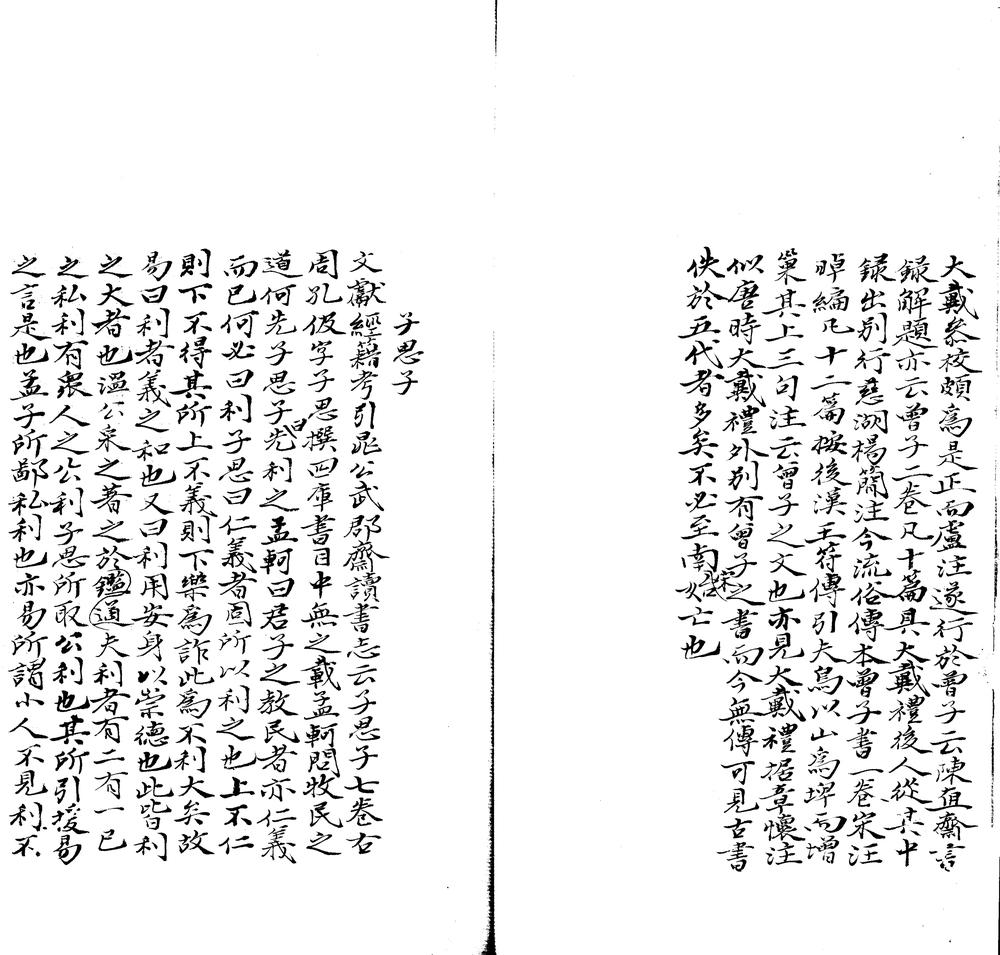 大戴參校頗爲是正而盧注遂行於曾子云陳直齋書
録解題亦云曾子二卷凡十篇具大戴禮後人從其中
録出別行慈湖楊簡注今流俗傳本曾子書一卷宋汪
晫編凡十二篇按後漢王符傳引夫鳥以山爲埤而增
巢其上三句注云曾子之文也亦見大戴禮据章懷注
似唐時大戴禮外別有曾子之書而今無傳可見古書
佚於五代者多矣不必至南宋始亡也
子思子
文獻經籍考引晁公武郡齋讀書志云子思子七卷右
周孔伋字子思撰四庫書目中無之載孟軻問牧民之
道何先子思子曰先利之孟軻曰君子之教民者亦仁義
而已何必曰利子思曰仁義者固所以利之也上不仁
則下不得其所上不義則下樂爲詐此爲不利大矣故
易曰利者義之和也又曰利用安身以崇德也此皆利
之大者也溫公采之著之於鑑通夫利者有二有一己
之私利有衆人之公利子思所取公利也其所引援易
之言是也孟子所鄙私利也亦易所謂小人不見利不